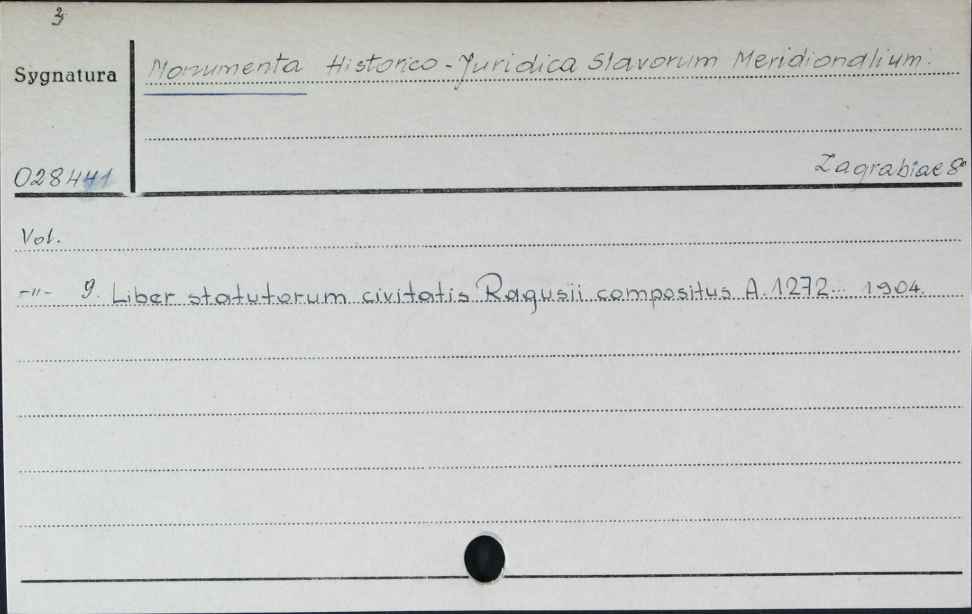 3
Sygnatura
Monumenta Historico-Juridica Slavorum Meridionalium.
028441
Zagrabiae 8°
Vol.
-"- 9. Liber statutorum civitatis Ragusii compositus A. 1272... 1904.